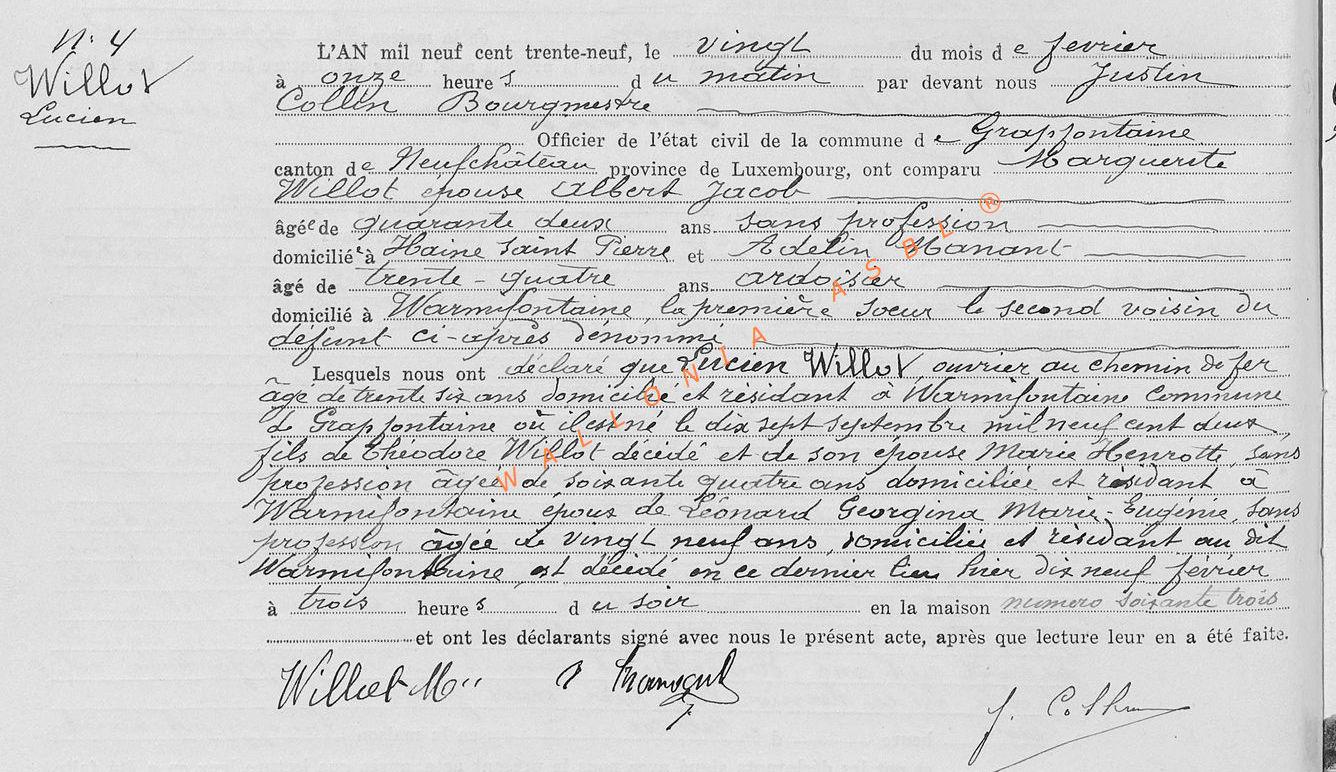 N. 4
Willot
Lucien
L'AN mil neuf cent trente-neuf, le vingt du mois de fevrier
à onze heures du matin par devant nous Justin
Collin Bourgmestre
Officier de l'état civil de la commune de Grapfontaine
canton de Neufchâteau province de Luxembourg, ont comparu Marguerite
Willot épouse Albert Jacob
âgée de quarante deux ans sans profession
domiciliée à Haine Saint Pierre et Adelin Manant
âgé de trente-quatre ans ardoisier
domicilié à Warmifontaine, la première soeur le second voisin du
défunt ci-après dénommé
Lesquels nous ont déclaré que Lucien Willot, ouvrier au chemin de fer
âgé de trente six ans domicilié et résidant à Warmifontaine Commune
de Grapfontaine où il est né le dix sept septembre mil neuf cent deux,
fils de Théodore Willot décédé et de son épouse Marie Henrotte, sans
profession âgée de soixante quatre ans domiciliée et résidant à
Warmifontaine époux de Léonard Georgina Marie-Eugénie, sans
profession âgée de vingt neuf ans, domiciliée et résidant au dit
Warmifontaine, est décédé en ce dernier lieu hier dix neuf février
à trois heures du soir en la maison numero soixante trois
et ont les déclarants signé avec nous le présent acte, après que lecture leur en a été faite.
Willot
J. Collin
WALLONIA ASBL ®